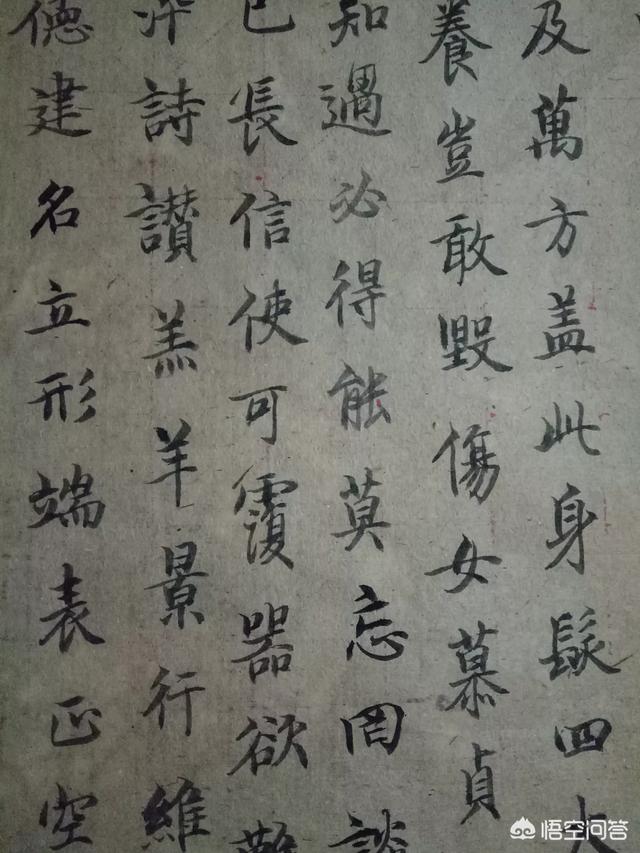 及萬方盖此身髮四大
養豈敢毀傷女慕貞
知過必得能莫忘罔談
己長信使可覆器欲難
詩讚羔羊景行維
德建名立形端表正空
悟空问答